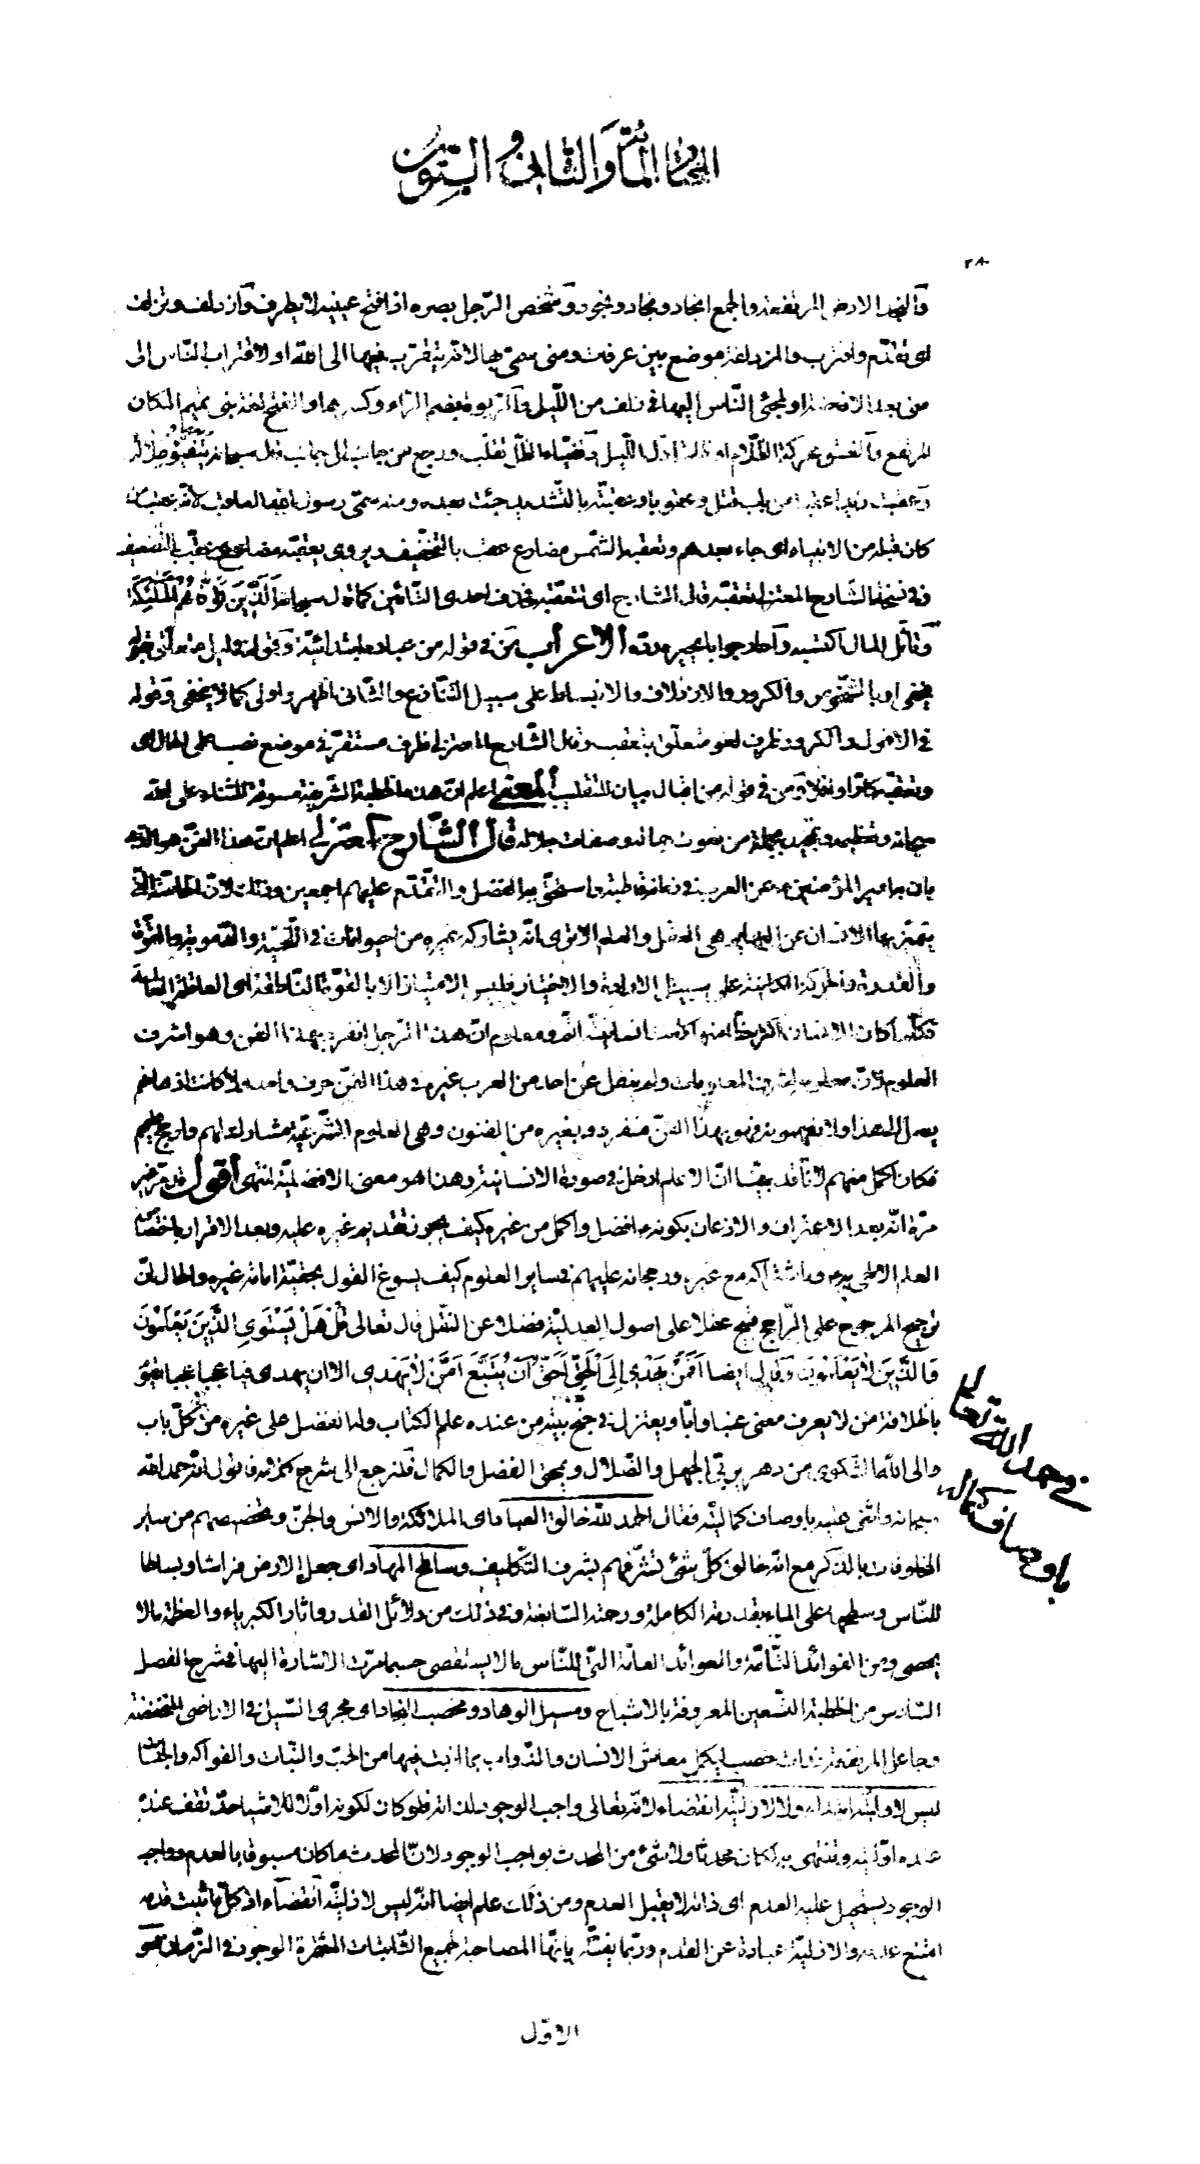 المختار المائة والثانی و الستون
۲۸
والنجد الارض المرتفعة والجمع انجاد ونجاد ونجود وشخص الرّجل بصره اذا فتح عينيه لا يطرف وازدلف وتزلف
ای تقدّم واقترب والمزدلفة موضع بين عرفات ومنى سمّى بها لانّه يتقرّب فيها الى الله او لاقتراب النّاس الى
منى بعد الافاضة او لمجئ النّاس اليها فی زلف من الليل والرّبوة بضم الرّاء وكسرها والفتح لغة بنی تميم المكان
المرتفع والغسق محركة الظّلام او ظلمة اوّل اللّيل وتفيّاء الظلّ تقلّب ورجع من جانب الى جانب قال سبحانه يتفيّؤ ظلاله
وعقبت زيدا عقبا من باب قتل وعقوبا وعقّبته بالتّشديد جئت بعده ومنه سمّی رسول الله العاقب لانّه عقب من
كان قبله من الانبياء ای جاء بعدهم وتعقبه الشّمس مضارع عقب بالتخفيف ويروى يعقّبه مضارع عقّب بالتّضعيف
وفی نسخة الشّارح المعتزلی تعقّبه قال الشارح ای تتعقّبه فحذف احدى التّائين كما قال سبحانه الّذين توفّاهم الملئكة
الاعراب من فی قوله من عباده
يخفى او بالشّخوص والكرور والازدلاف والانبساط على سبيل التّنازع والثّانی اظهر واولى كما لا يخفى وقوله
فی الافول والكرور ظرف لغو متعلّق بتعقبه وقال الشّارح المعتزلی ظرف مستقرّ فی موضع نصب على الحال ای
وتعقبه كارّا وآفلا ومن فی قوله من اقبال بيان للتقليب المعنى اعلم انّ هذه الخطبة الشّريفة مسوقة للثناء على الله
سبحانه وتعظيمه وتمجيده بجملة من نعوت جماله وصفات جلاله قال الشّارح المعتزلی اعلم انّ هذا الفنّ هو الذی
بان به امير المؤمنين عن العرب فی زمانه قاطبة واستحقّ به الفضل والتّقدّم عليهم اجمعين وذلك لانّ الخاصّة الّتی
يتميّز بها الانسان عن البهايم هی العقل والعلم الا ترى انّه يشاركه غيره من الحيوانات فی اللّحميّة والدّمويّة والقوّة
والقدرة والحركة الكاينة على سبيل الارادة والاختيار فليس الامتياز الّا بالقوّة النّاطقة ای العاقلة العالمة
فكلّما كان الانسان اكثر حظّا منها كانت انسانيّته اتمّ ومعلوم انّ هذا الرّجل انفرد بهذا الفنّ وهو اشرف
العلوم لانّ معلومه اشرف المعلومات ولم ينقل عن احد من العرب غيره فی هذا الفنّ حرف واحد ولا كانت اذهانهم
يصل الى هذا ولا يفهمونه فهو بهذا الفنّ منفرد وبغيره من الفنون وهی العلوم الشّرعيّة مشارك لهم وراجح عليهم
فكان اكمل منهم لانّا قد بيّنا انّ الاعلم ادخل فی صورة الانسانيّة وهذا هو معنى الافضليّة انتهى اقول قد مرّ غير
مرّة انّه بعد الاعتراف والاذعان بكونه افضل واكمل من غيره كيف يجوز تقديم غيره عليه وبعد الاقرار باختصاص
العلم الالهی به واشتراكه مع غيره ورجحانه عليهم فی ساير العلوم كيف يسوغ القول بحقيّة امامة غيره والحال انّ
ترجيح المرجوح على الرّاجح قبيح عقلا على اصول العدليّة فضلا عن النّقل قال تعالى قل هل يستوی الّذين يعلمون
والّذين لا يعلمون وقال ايضا افمن يهدی الى الحقّ احقّ ان يتّبع امّن لا يهدّی الا ان يهدى فيا عجبا عجبا
بالخلافة من لا يعرف معنى عنبا وابّا ويعتزل فی جنح بيته من عنده علم الكتاب وله الفضل على غيره من كلّ باب
والى الله الشّكوى من دهر يربّی الجهل والضّلال ويمحق الفضل والكمال فلنرجع الى شرح كلامه فاقول انّه حمد الله
سبحانه واثنى عليه باوصاف كماليّة فقال الحمد لله خالق العباد ای الملائكة والانس والجنّ وتخصيصهم من ساير
المخلوقات بالذّكر مع انّه خالق كلّ شیء لتشرّفهم بشرف التّكليف وساطح المهاد ای جعل الارض فراشا وبساطا
للنّاس وسطحها على الماء بقدرته الكاملة ورحمته السّابغة وفی ذلك من دلائل القدرة واثار الكبرياء والعظمة ما لا
يحصى ومن الفوائد التّامّة والعوائد العامّة الّتی للنّاس ما لا يستقصى حسبما مرّت الاشارة اليها فی شرح الفصل
السّادس من الخطبة التّسعين المعروفة بالاشباح ومسيل الوهاد ومخصب النجاد ای مجری السّيل فی الاراضی المنخفضة
وجاعل المرتفعة ذات خصب ليكمل معاش الانسان والدّواب بما انبت فيها من الحبّ والنّبات والفواكه والجنّات
ليس لاوّليّته ابتداء ولا لازليّته انقضاء لانّه تعالى واجب الوجود لذاته فلو كان لكونه اوّلا للاشياء حدّ تقف عنده
عنده اوّليّته وتنتهی به لكان محدثا ولا شیء من المحدث بواجب الوجود لانّ المحدث ما كان مسبوقا بالعدم وواجب
الوجود يستحيل عليه العدم ای ذاته لا يقبل العدم ومن ذلك علم ايضا انّه ليس لازليّته انقضاء اذ كلّ ما ثبت قدمه
امتنع عدمه والازليّة عبارة عن القدم وربّما يفسّر بانّها المصاحبة لجميع الثّابتات المستمرّة الوجود فی الزّمان
الاوّل
فی حمد الله تعالى
باوصاف كماله